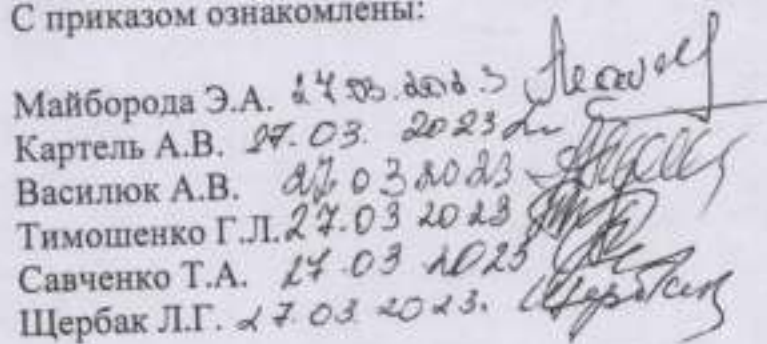 С приказом ознакомлены:
Майборода Э.А. 27.03.2023
Картель А.В. 27.03. 2023
Василюк А.В. 27.03 2023
Тимошенко Г.Л. 27.03 2023
Савченко Т.А. 27.03 2023
Щербак Л.Г. 27.03 2023. Щербак